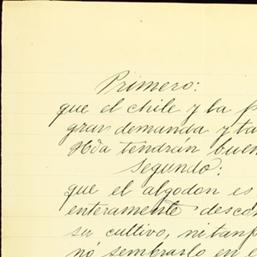 Primero:
que el chile y la p
gran demanda y ta
tendrán buen
Segundo:
que el algodon es
enteramente descon
su cultivo, ni tanp
nó sembrarlo en e